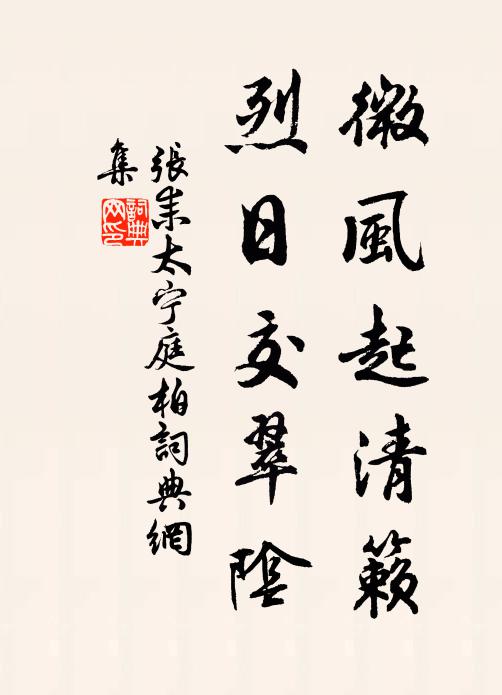 微風起清籟
烈日交翠陰
張耒太宁庭柏詞典網
集
詞典
网印